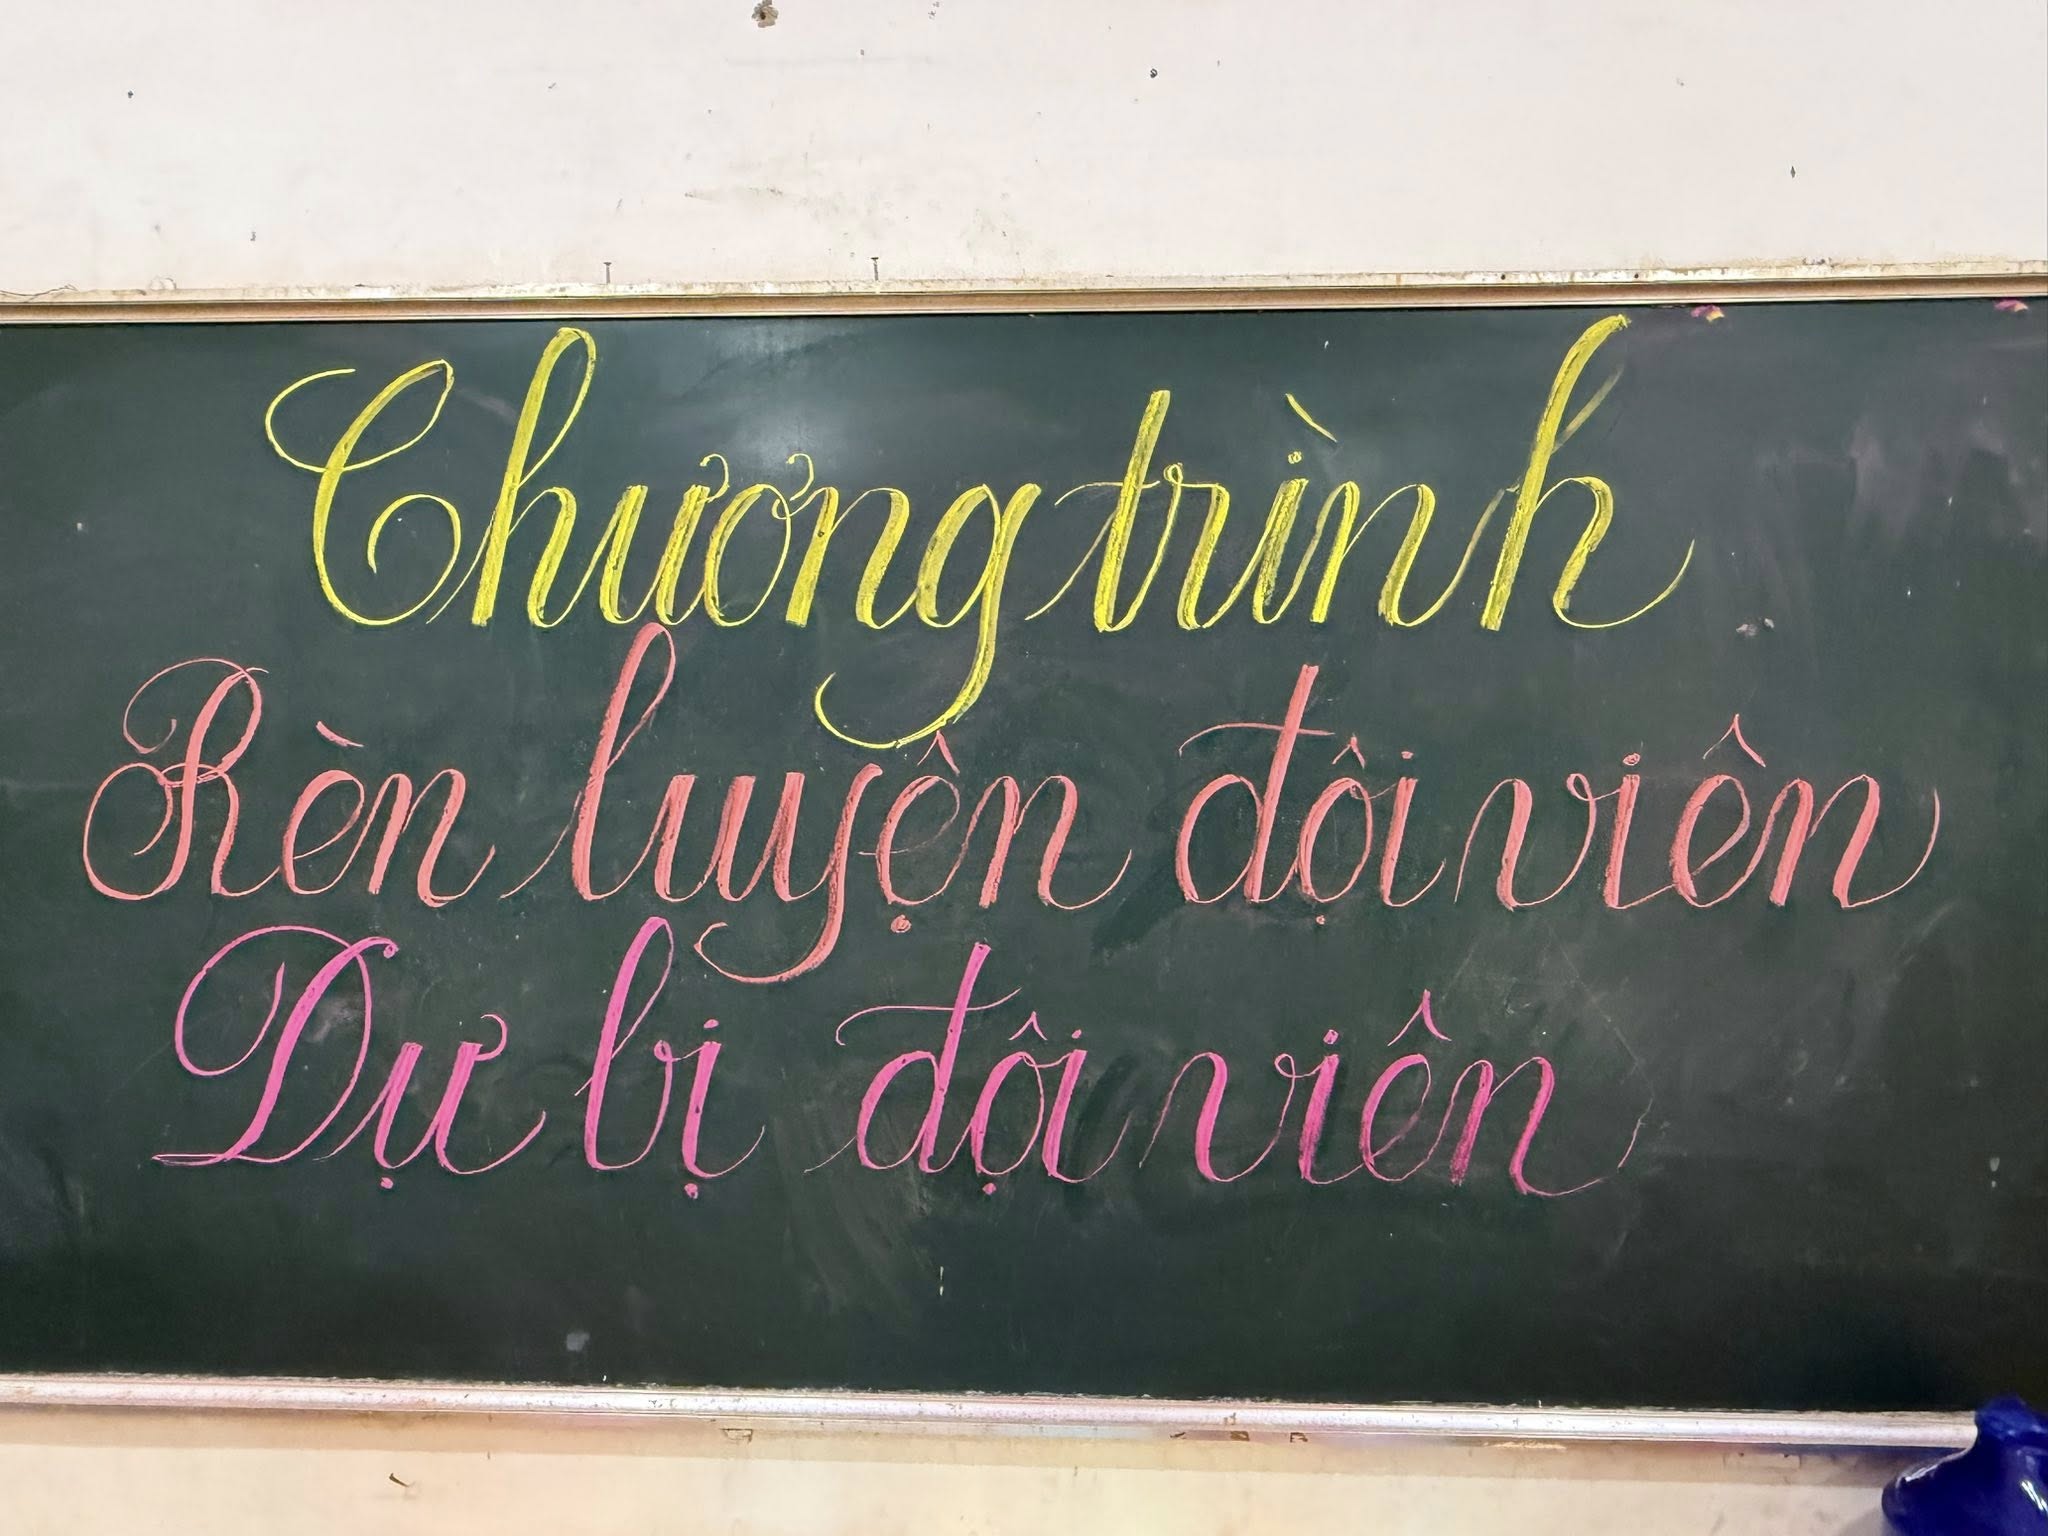 Chương trình
Rèn luyện đội viên
Dự bị đội viên